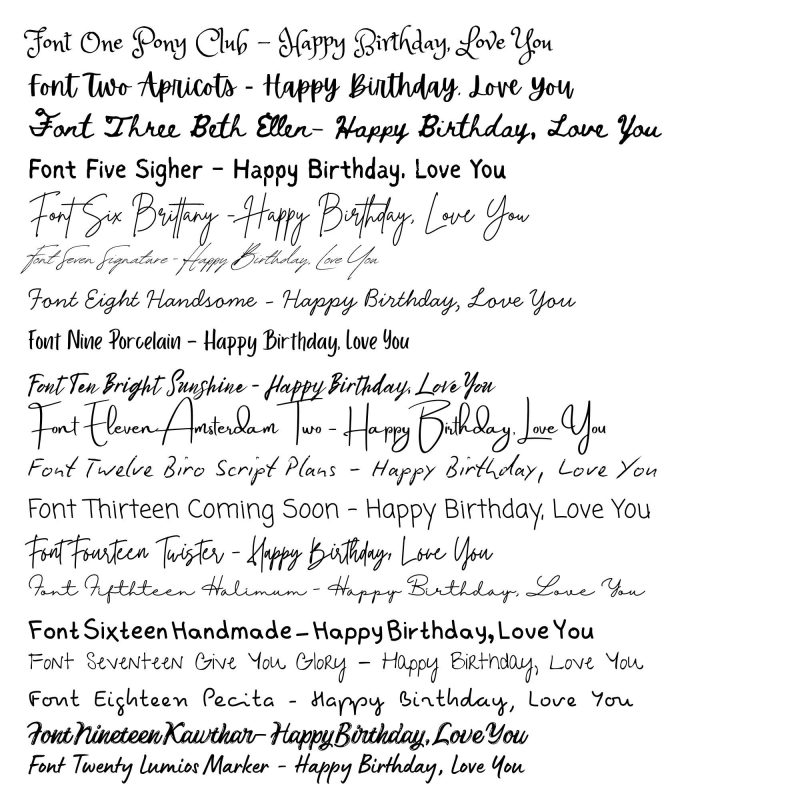 Font One Pony Club – Happy Birthday, Love You
Font Two Apricots - Happy Birthday. Love you
Font Three Beth Ellen- Happy Birthday, Love You
Font Five Sigher – Happy Birthday, Love You
Font Six Brittany -Happy Birthday, Love You
Font Seven Signature - Happy Birthday, Love You
Font Eight Handsome - Happy Birthday, Love You
Font Nine Porcelain – Happy Birthday, Love You
Font Ten Bright Sunshine - Happy Birthday, Love You
Font Eleven Amsterdam Two - Happy Birthday, Love You
Font Twelve Biro Script Plans - Happy Birthday, Love You
Font Thirteen Coming Soon - Happy Birthday, Love You
Font Fourteen Twister - Happy Birthday, Love You
Font Fifthteen Halimum - Happy Birthday, Love You
Font Sixteen Handmade – Happy Birthday, Love You
Font Seventeen Give You Glory – Happy Birthday, Love You
Font Eighteen Pecita - Happy Birthday, Love You
Font Nineteen Kawthar- Happy Birthday, Love You
Font Twenty Lumios Marker - Happy Birthday, Love You